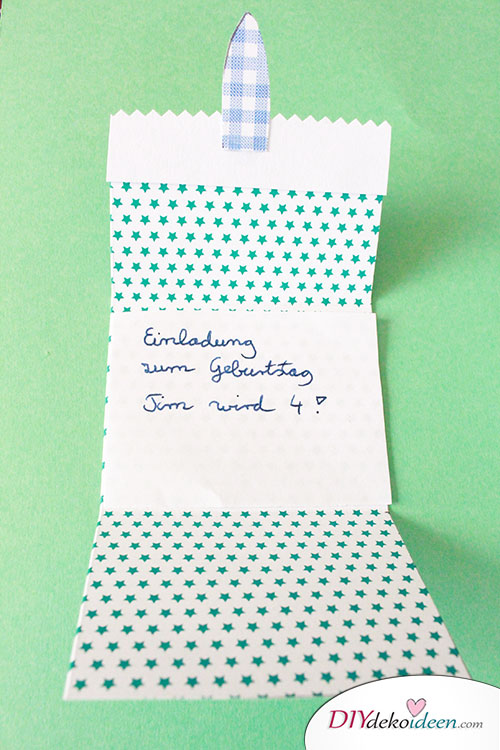 Einladung
zum Geburtstag
Jim wird 4!
DIYdekoideen.com